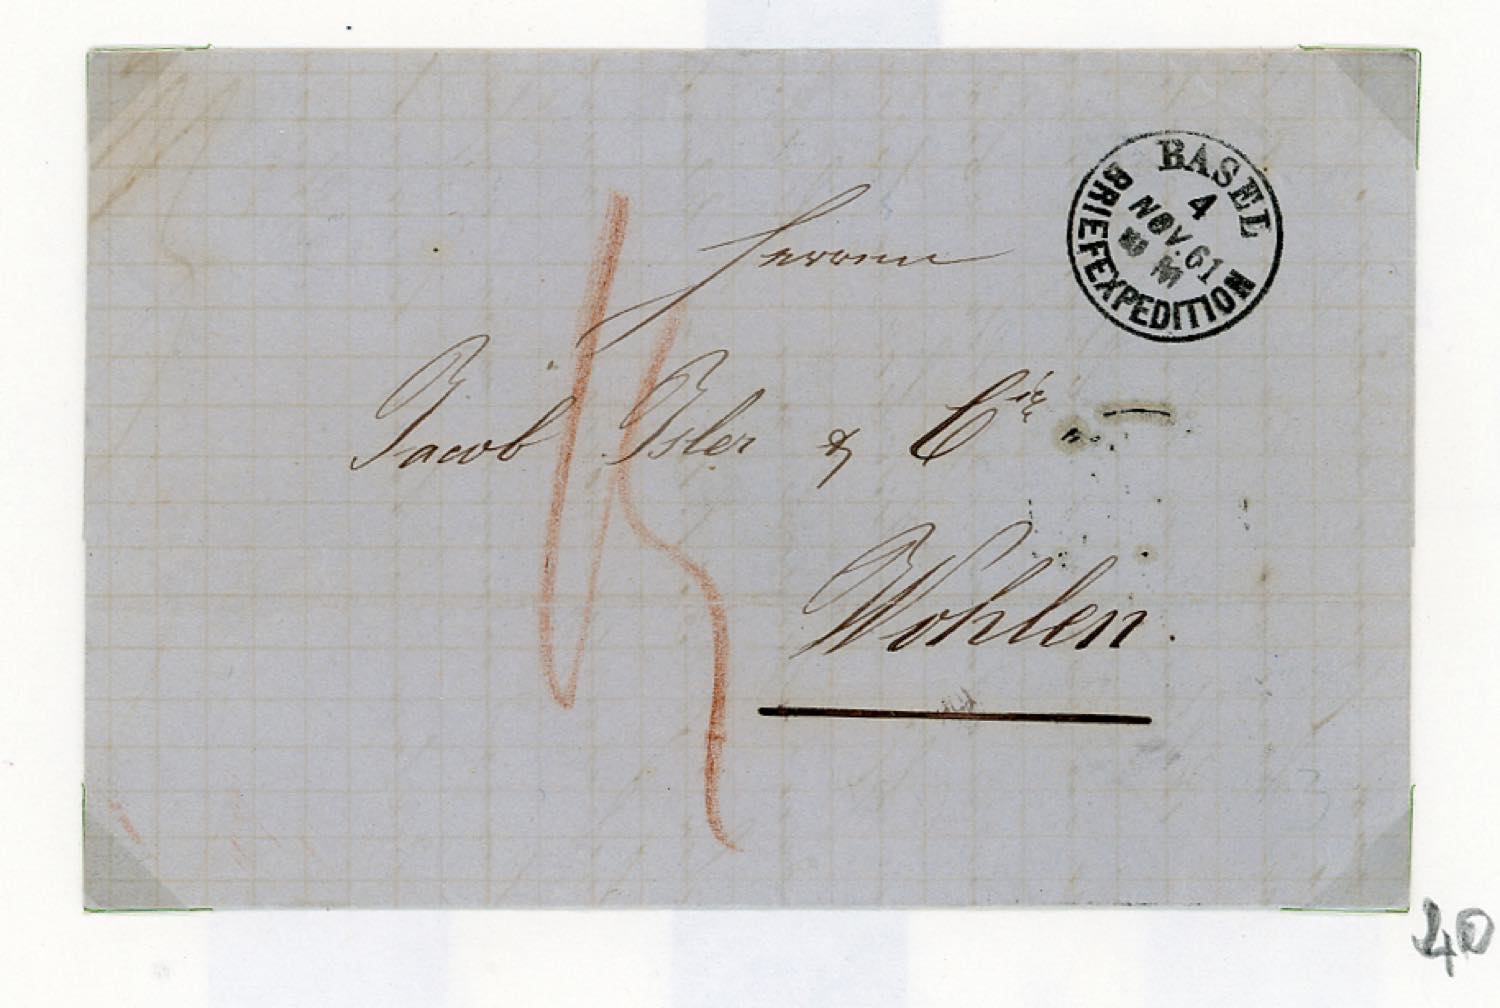 BASEL
4
NOV. 61
BRIEFEXPEDITION
Herren
Jacob Isler & Cie
Wohlen.
40